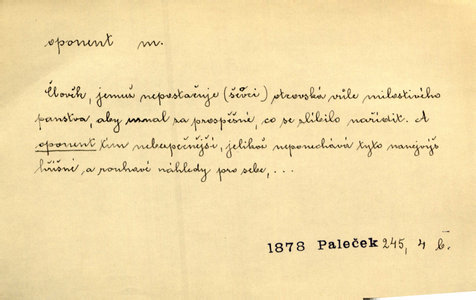 oponent m.
Člověk, jemuž nepostačuje (ševci) otcovská vůle milostivého
panstva, aby uznal za prospěšné, co se zlíbilo naříditi. A
oponent tím nebezpečnější, jelikož neponechává tyto nanejvýš
hříšné a rouhavé náhledy pro sebe, . . .
1878 Paleček 245, 4 b.